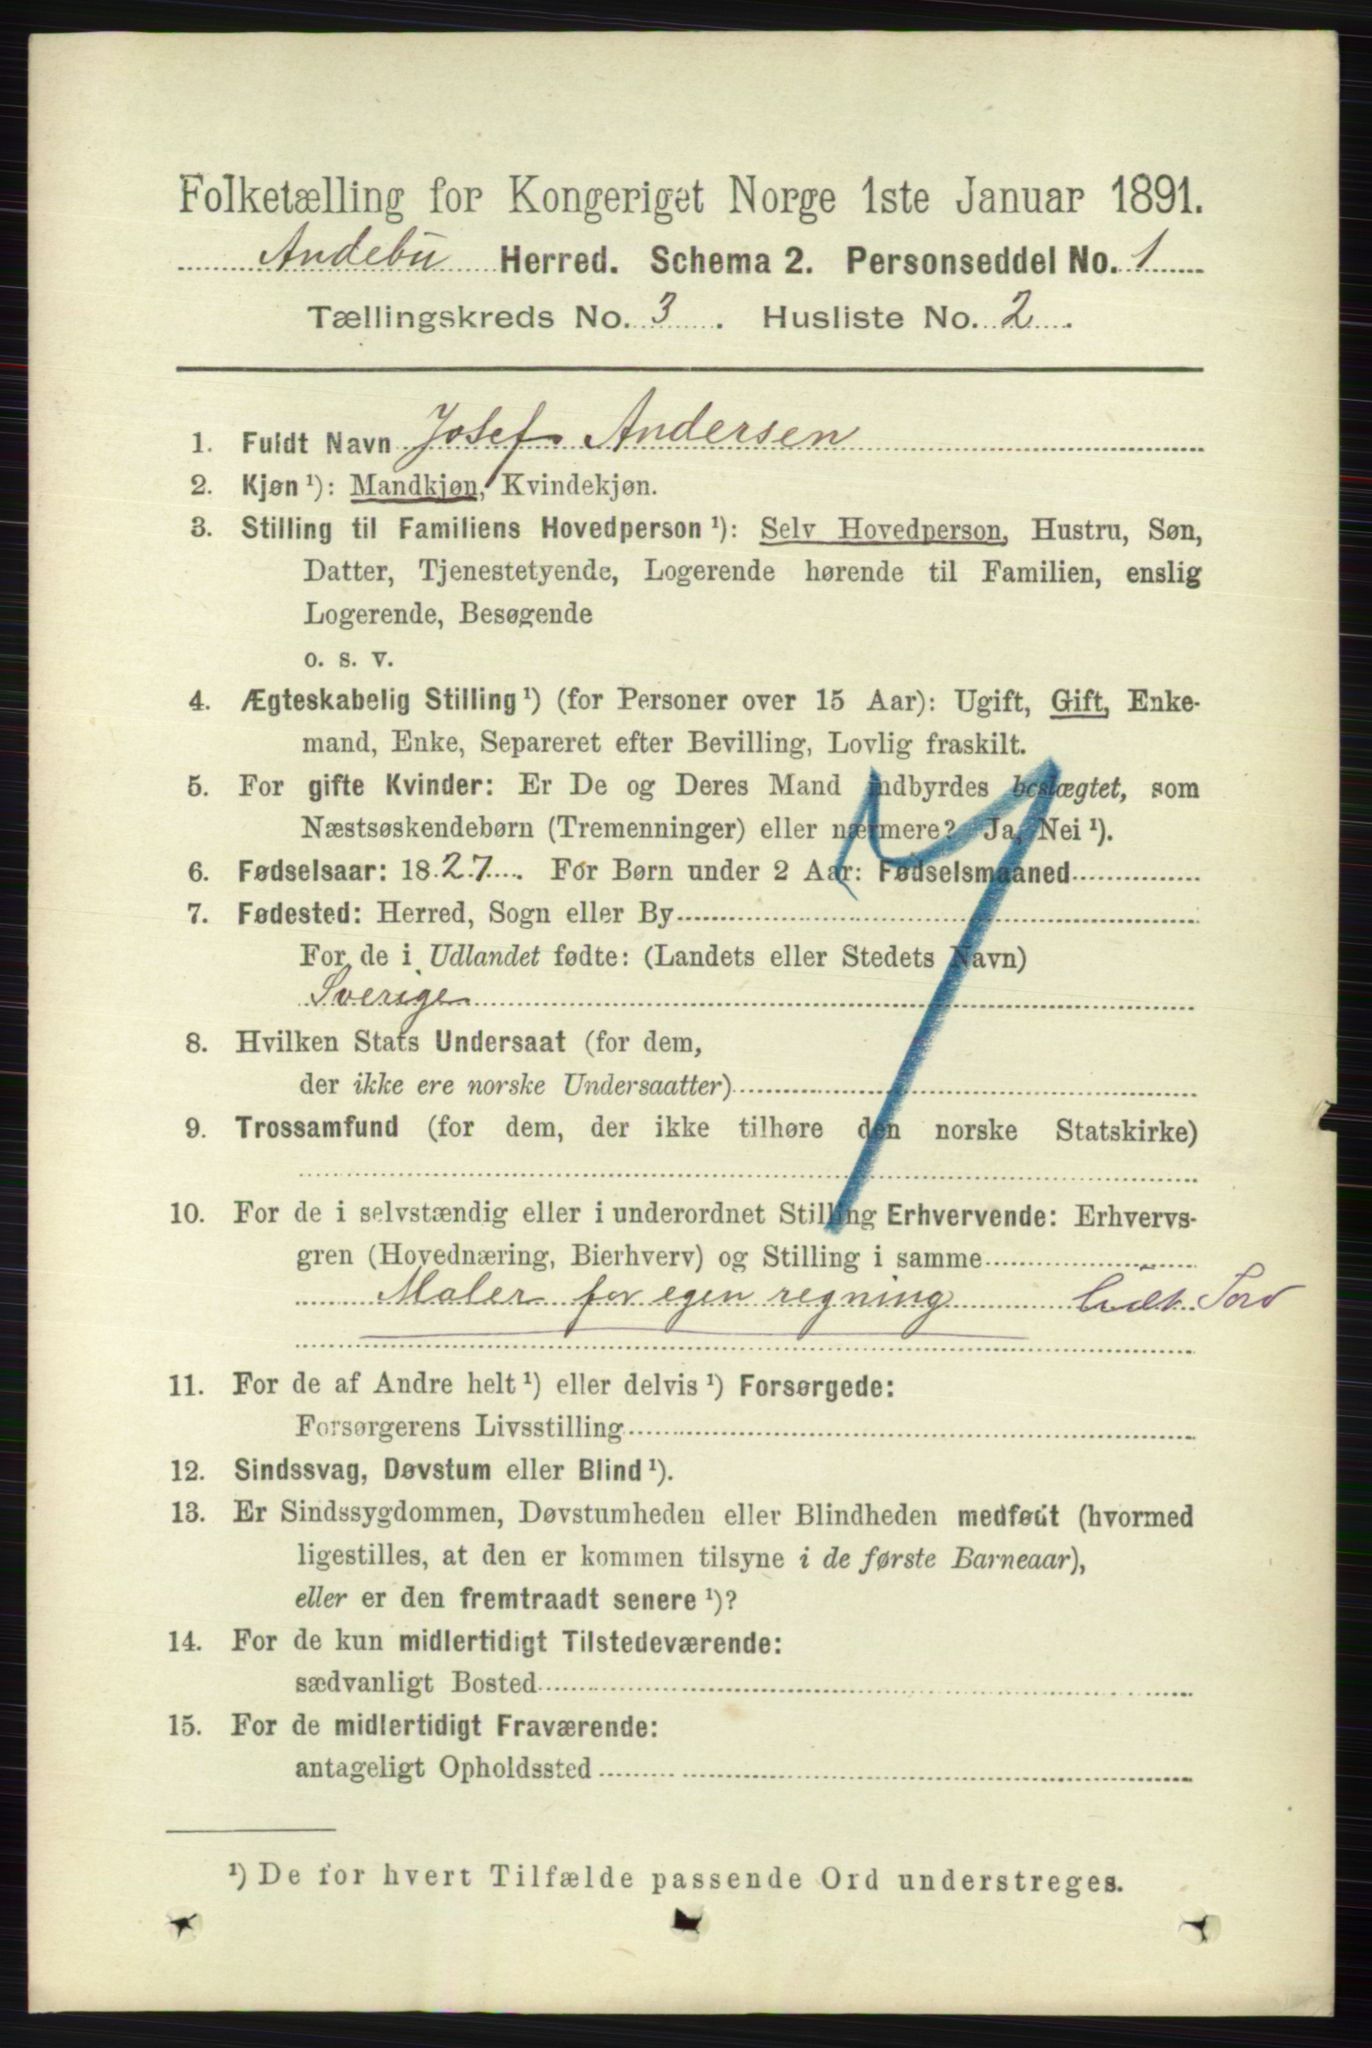 Folketælling for Kongeriget Norge 1ste Januar 1891.
Andebu Herred. Schema 2. Personseddel No. 1
Tællingskreds No. 3. Husliste No. 2.
1. Fuldt Navn Josef Andersen
2. Kjøn ¹): Mandkjøn, Kvindekjøn.
3. Stilling til Familiens Hovedperson ¹): Selv Hovedperson, Hustru, Søn,
Datter, Tjenestetyende, Logerende hørende til Familien, enslig
Logerende, Besøgende
o. s. v.
4. Ægteskabelig Stilling ¹) (for Personer over 15 Aar): Ugift, Gift, Enke-
mand, Enke, Separeret efter Bevilling, Lovlig fraskilt.
5. For gifte Kvinder: Er De og Deres Mand indbyrdes beslægtet, som
Næstsøskendebørn (Tremenninger) eller nærmere? Ja, Nei ¹).
6. Fødselsaar: 1827. For Børn under 2 Aar: Fødselsmaaned
7. Fødested: Herred, Sogn eller By
For de i Udlandet fødte: (Landets eller Stedets Navn)
Sverige
8. Hvilken Stats Undersaat (for dem,
der ikke ere norske Undersaatter)
9. Trossamfund (for dem, der ikke tilhøre den norske Statskirke)
10. For de i selvstændig eller i underordnet Stilling Erhvervende: Erhvervs-
gren (Hovednæring, Bierhverv) og Stilling i samme
Maler for egen regning
11. For de af Andre helt ¹) eller delvis ¹) Forsørgede:
Forsørgerens Livsstilling
12. Sindssvag, Døvstum eller Blind ¹).
13. Er Sindssygdommen, Døvstumheden eller Blindheden medfødt (hvormed
ligestilles, at den er kommen tilsyne i de første Barneaar),
eller er den fremtraadt senere ¹)?
14. For de kun midlertidigt Tilstedeværende:
sædvanligt Bosted
15. For de midlertidigt Fraværende:
antageligt Opholdssted
¹) De for hvert Tilfælde passende Ord understreges.